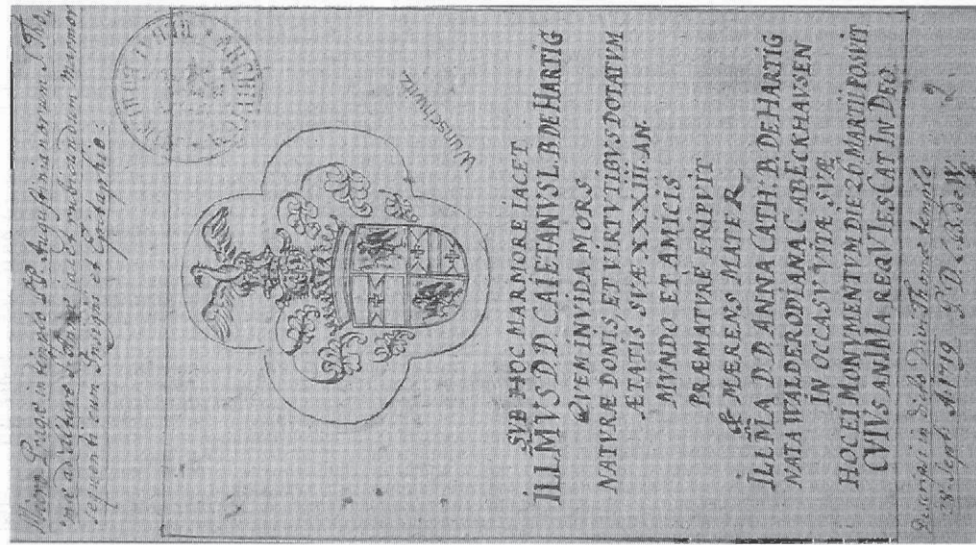 Pragæ in templo PP. Augustinianorum S. Tho,
mæ ad altare S. Annæ jacet rubicundum Marmor
sequenti cum Insigni et Epitaphio:
Wunschwitz
SVB HOC MARMORE IACET
ILLMVS D. D. CAIETANVS L. B. DE HARTIG
QVEM INVIDA MORS
NATVRÆ DONIS, ET VIRTVTIBVS DOTATVM
ÆTATIS SVÆ XXXIII. AN.
MVNDO ET AMICIS
PRÆMATVRE ERIPVIT
MERENS MATER
ILLMA D. D. ANNA CATH. B. DE HARTIG
NATA WALDERODIANA C. AB ECKHAVSEN
IN OCCASV VITÆ SVÆ
HOC EI MONVMENTVM DIE 26 MARTII POSVIT
CVIVS ANIMA REQVIESCAT IN DEO.
Descripsi in dicto Divi Thomæ templo
28 Septb A. 1719